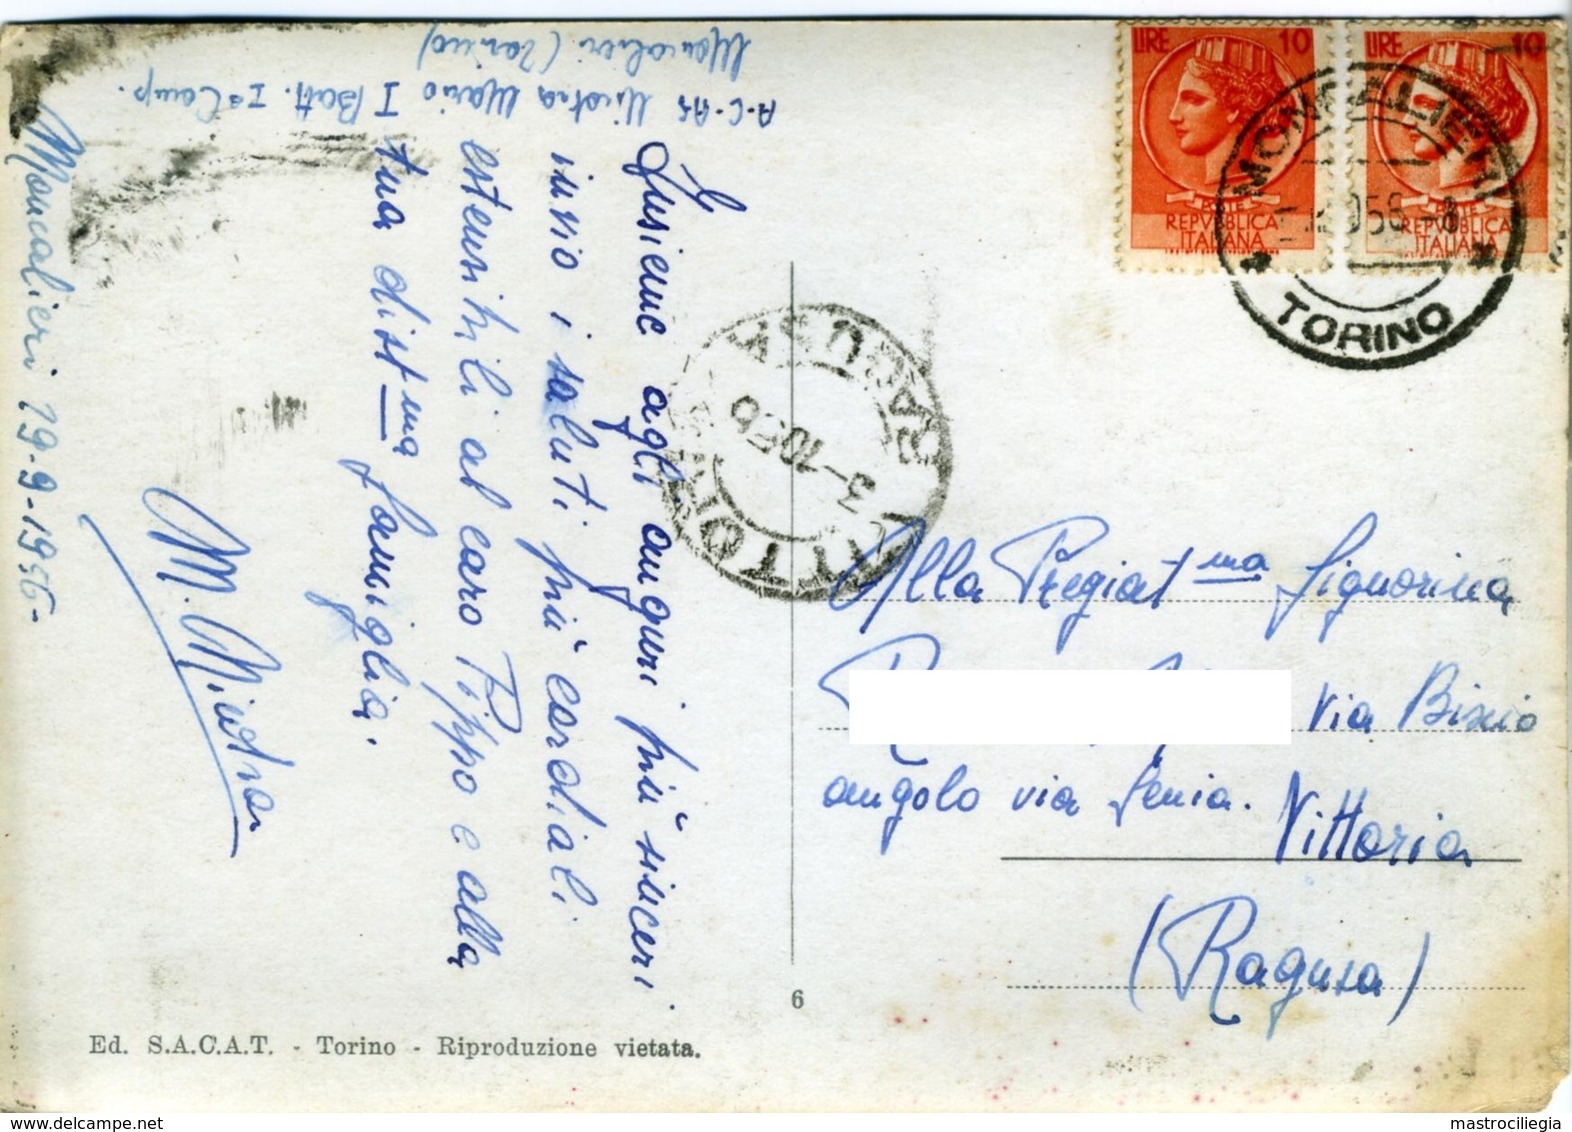 A.C.AS Mario I Batt. Iª Comp.
Moncalieri (Torino)
Insieme agli auguri più sinceri
invio i saluti più cordiali
estensibili al caro Pippo e alla
tua dist.ma famiglia.
Moncalieri 29-9-1956-
LIRE 10
REPVBBLICA
ITALIANA
LIRE 10
REPVBBLICA
ITALIANA
MONCALIERI
TORINO
VITTORIA
RAGUSA
3-10-56
Alla Pregiat.ma Signorina
via Bixio
angolo via Senia. Vittoria
(Ragusa)
6
Ed. S.A.C.A.T. - Torino - Riproduzione vietata.
mastrociliegia